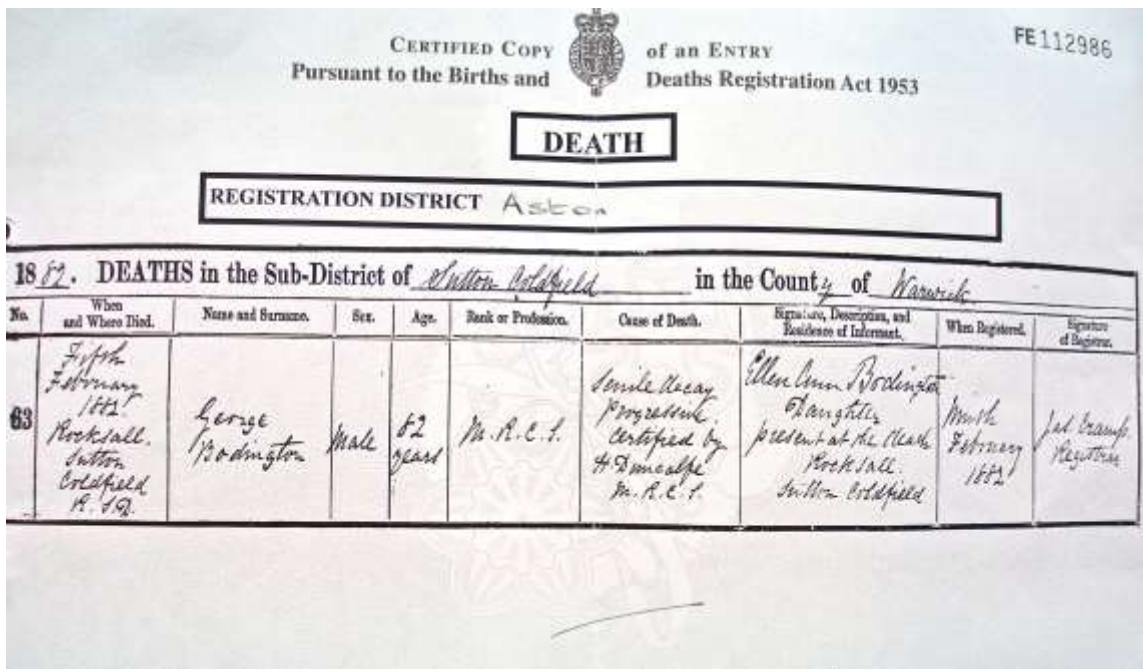 CERTIFIED COPY of an ENTRY
Pursuant to the Births and Deaths Registration Act 1953
FE112986
DEATH
REGISTRATION DISTRICT Aston
1882. DEATHS in the Sub-District of Sutton Coldfield in the County of Warwick
No.
When
and Where Died.
Name and Surname.
Sex.
Age.
Rank or Profession.
Cause of Death.
Signature, Description, and
Residence of Informant.
When Registered.
Signature
of Registrar.
63
Fifth
February
1882
Rocksall.
Sutton
Coldfield
R.S.D.
George
Bodington
Male
82
years
M.R.C.S.
Senile decay
Progressive
Certified by
H Duncalfe
M.R.C.S.
Ellen Ann Bodington
Daughter
present at the death
Rocksall.
Sutton Coldfield
Ninth
February
1882
Registrar